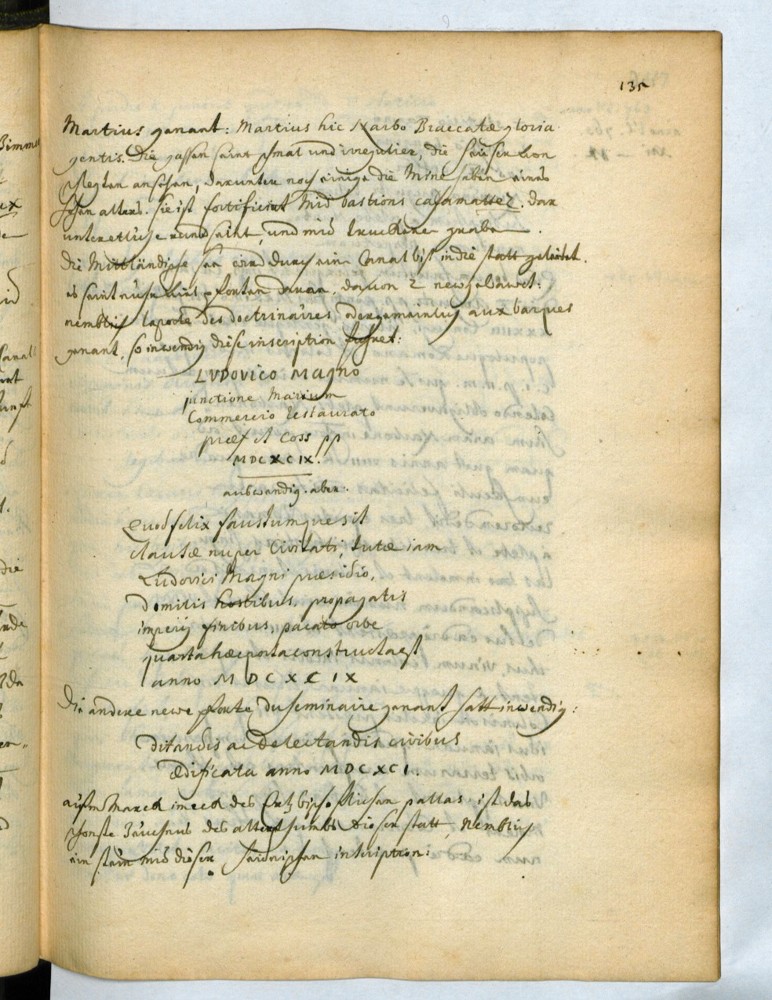 135
Martius genant: Martius hic Narbo Braccatæ gloria
gentis. Die gassen saint schmal und irregulier, die heüser von
schlechten ansehen, darunter noch einige die Mine haben eines
hohen alters. Sie ist fortificirt mid bastions casamattez. dar
und mid truckene graben.
Die Mittländische see wird durch ein Canal bis in die statt geleidet.
es saint nuhr pforten daran, davon 2 new gebauet:
nemblich la porte des doctrinaires oder gemainlich aux barques
genant, so inwendig diese inscription führet:
LVDOVICO Magno
junctione Marium
Commercio restaurato
præf et Coss pp
MDCXCIX.
auswendig aber:
Quod felix faustumque sit
clausæ nuper Civitati, tutæ iam
Ludovici Magni præsidio,
Domitis hostibus, propagatis
imperij finibus, pacato orbe
quarta hæc porta constructa est
anno MDCXCIX
Die andere newe pforte du seminaire genant hatt inwendig:
Ditandis ac delectandis civibus
ædificata anno MDCXCI.
aufm Marck im eck des Ertzbischofflichen pallas ist das
schonste Zäuchnus des alterthumbs dieser statt, Nemblich
ein stain mid dieser inscription: